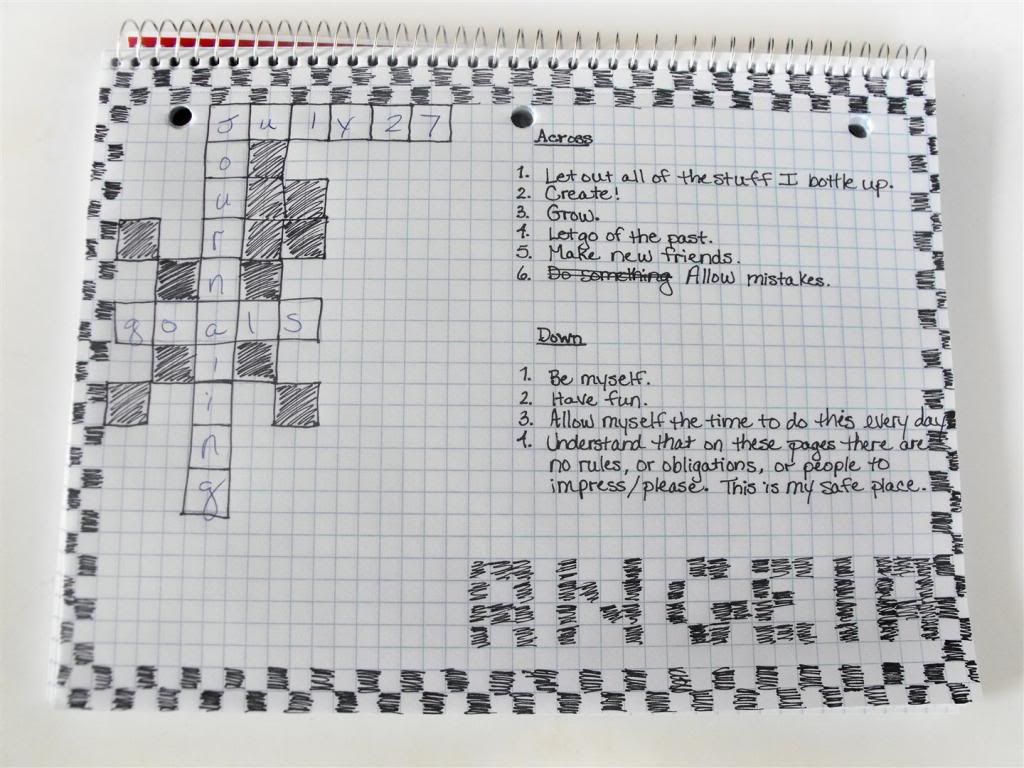 July 27
journaling
goals
Across
1. Let out all of the stuff I bottle up.
2. Create!
3. Grow.
4. Let go of the past.
5. Make new friends.
6. Do something Allow mistakes.
Down
1. Be myself.
2. Have fun.
3. Allow myself the time to do this every day
4. Understand that on these pages there are
no rules, or obligations, or people to
impress/please. This is my safe place.
ANGELA